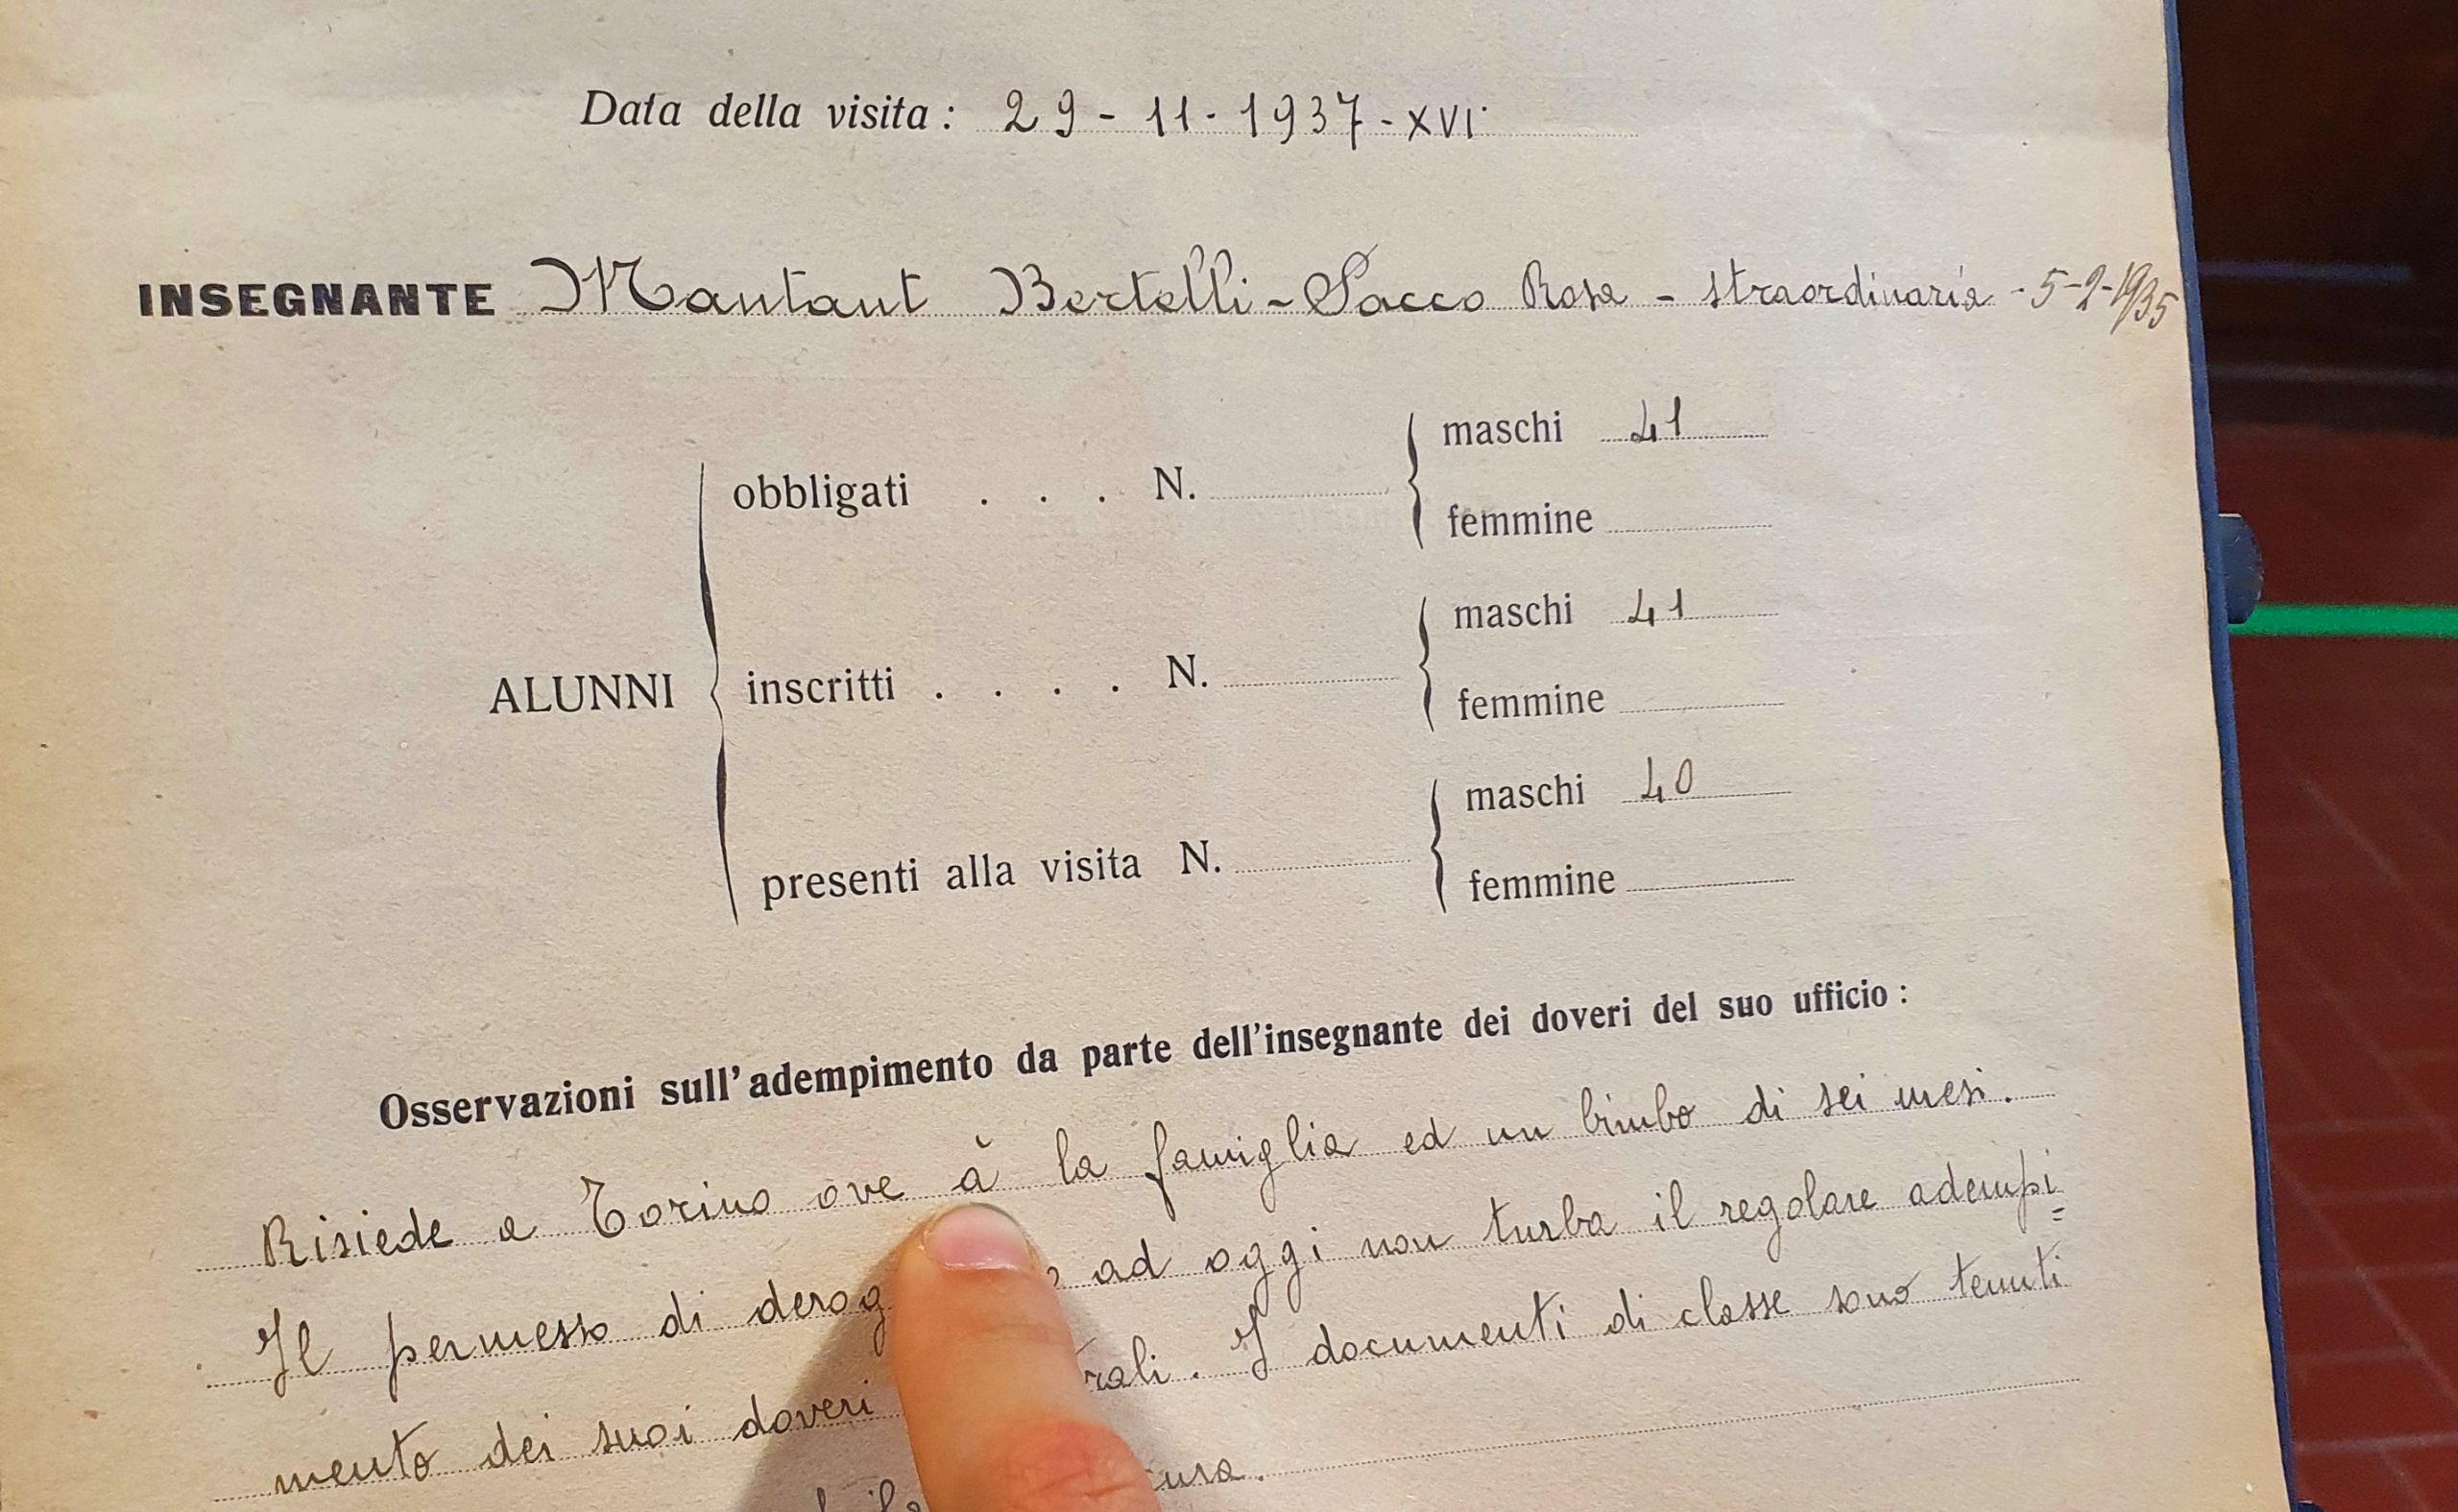 Data della visita : 29 - 11 - 1937 - XVI
INSEGNANTE Mantaut Bertelli - Sacco Rosa - straordinaria - 5-2-1935
maschi 41
obbligati . . . N.
femmine
maschi 41
ALUNNI inscritti . . . . N.
femmine
maschi 40
presenti alla visita N.
femmine
Osservazioni sull'adempimento da parte dell'insegnante dei doveri del suo ufficio :
Risiede a Torino ove à la famiglia ed un bimbo di sei mesi.
Il permesso di ad oggi non turba il regolare adempi=
mento dei suoi doveri . I documenti di classe sono tenuti